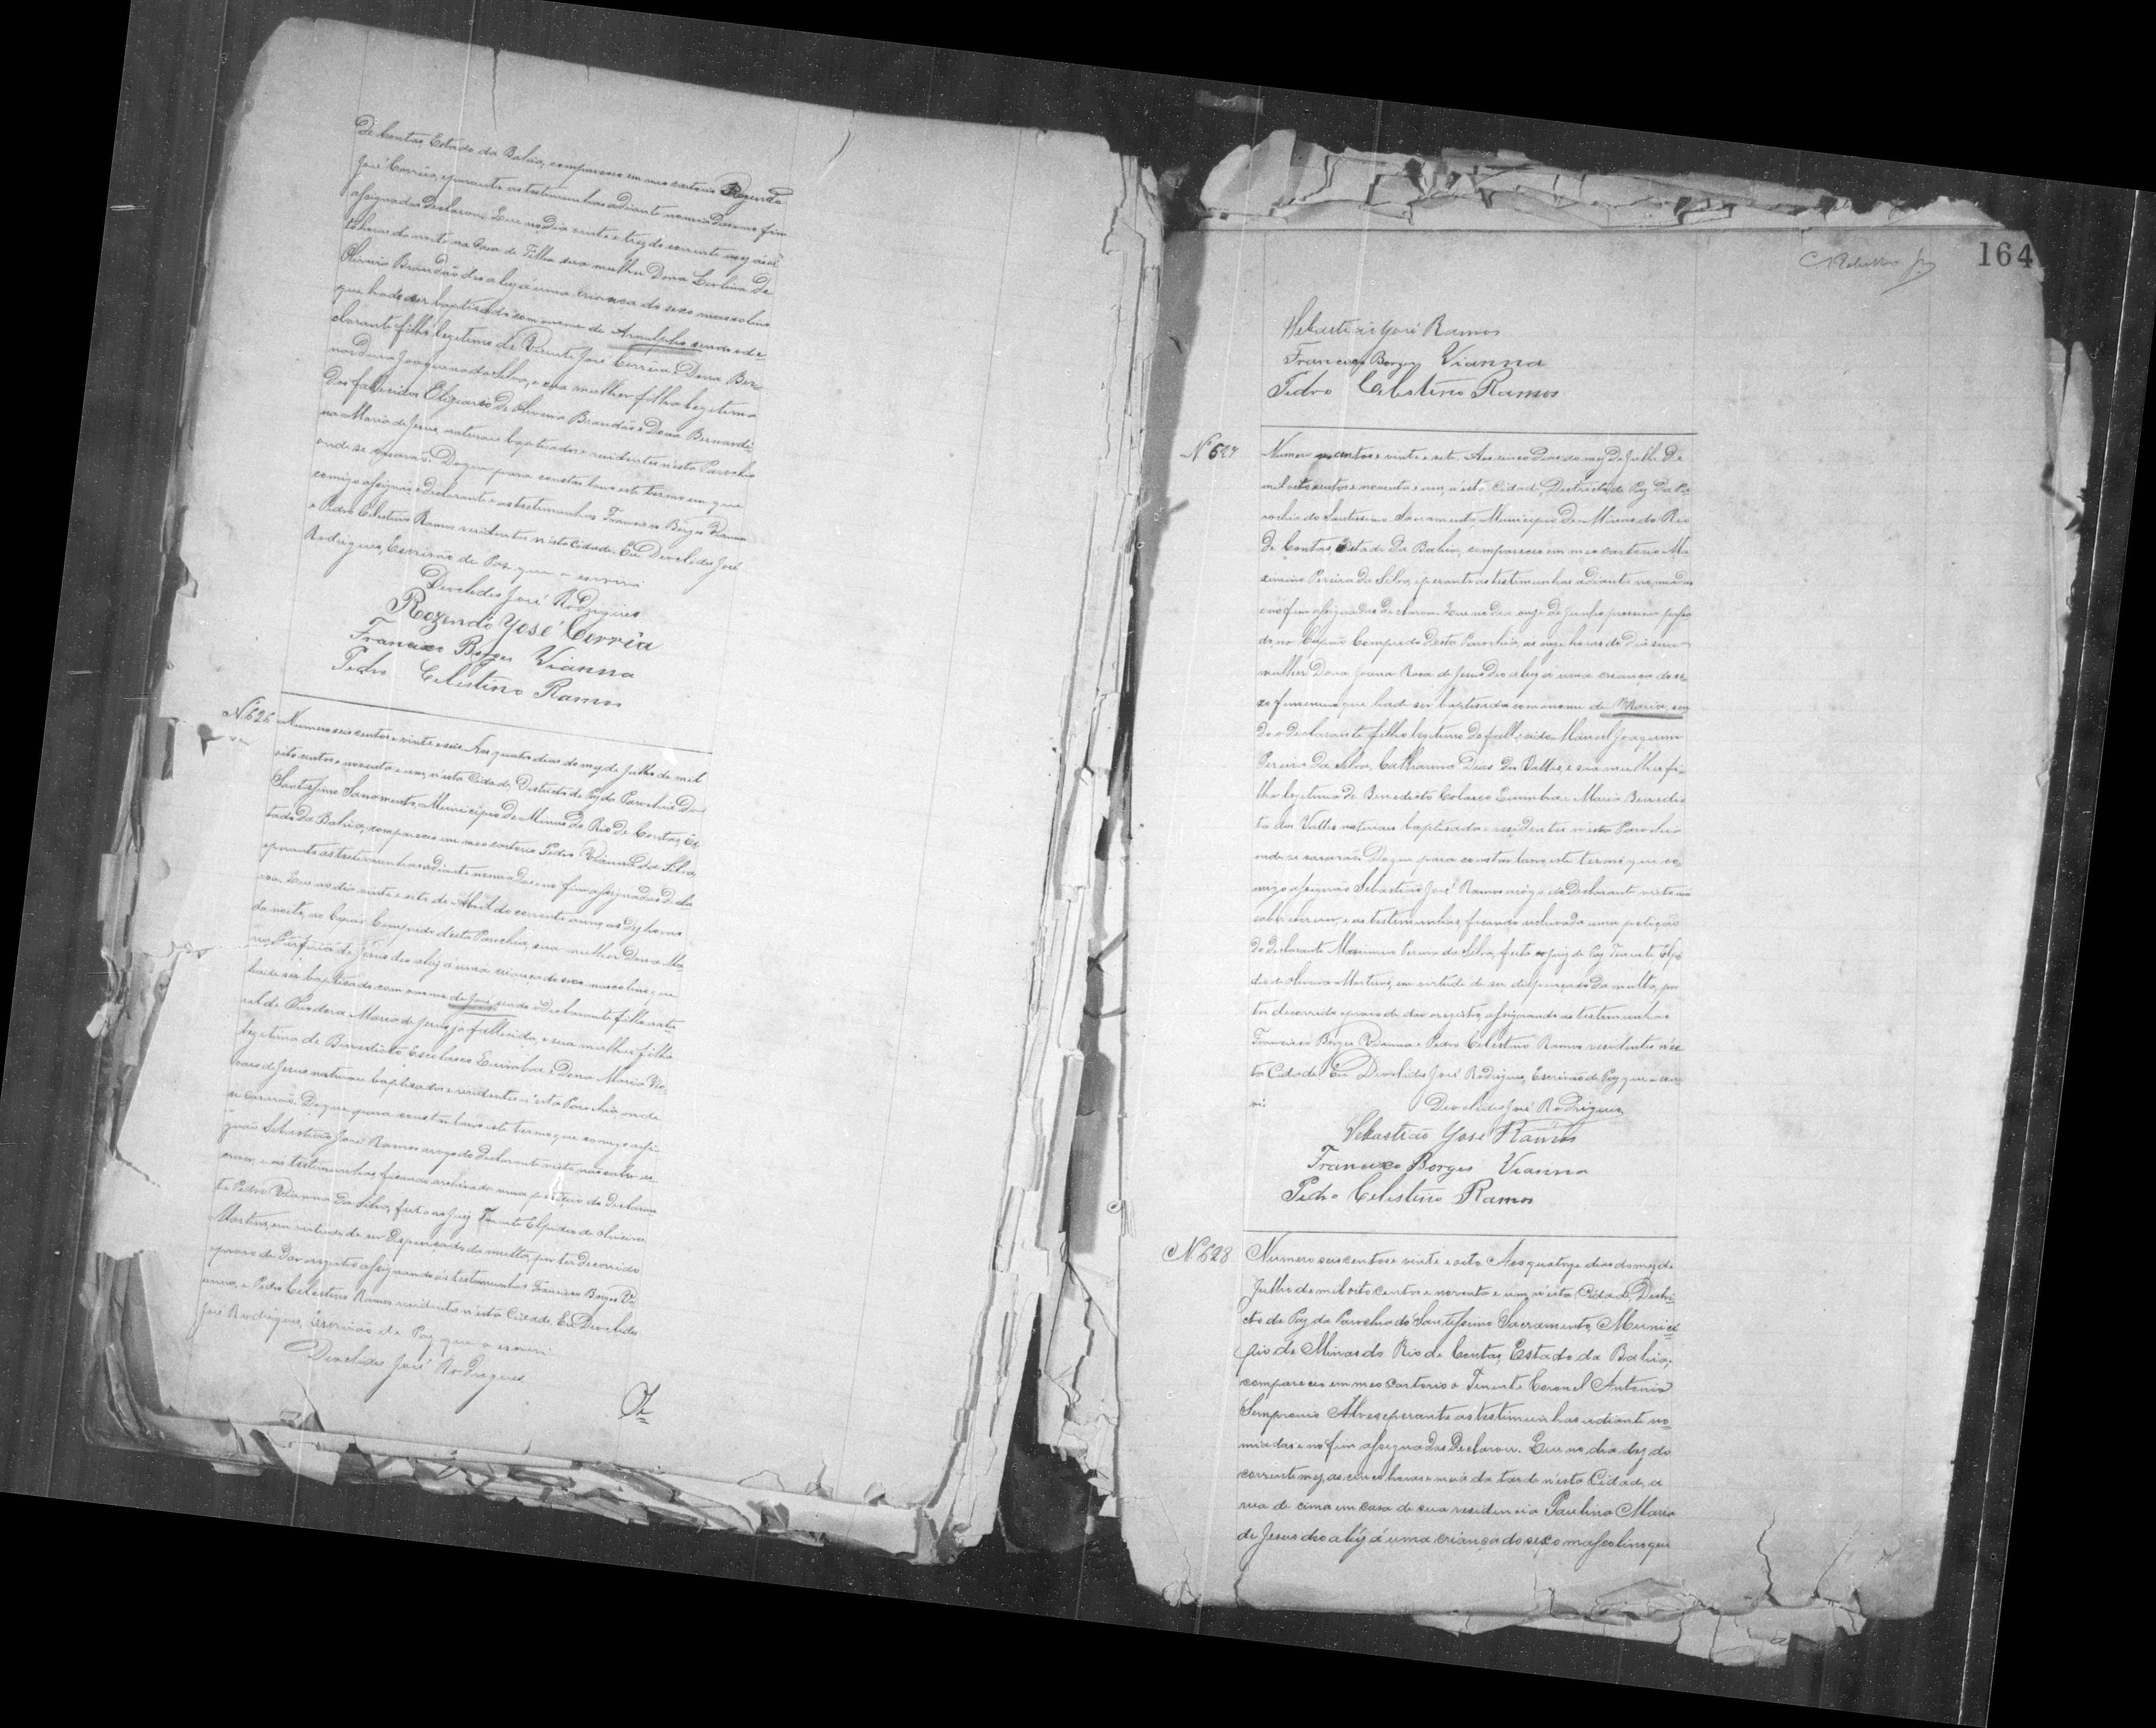 de Contas, Estado da Bahia, compareceo em meo cartorio Rozendo
José Corrêa, e perante as testimunhas adiante nomiadas e no fim
assignadas declarou: Que no dia vinte e trez do corrente mez, as
horas da noite na Casa de Telha sua mulher Dona Carolina de
Oliveira Brandão deo a luz á uma criança do sexo mascolino
que hade ser baptisado com o nome de Arnulpho, sendo o de-
clarante filho legitimo de Vicente José Corrêa e Dona Ber-
narda Joaquina da Silva, e sua mulher filha legitima
dos fallecidos Oligario de Oliveira Brandão e Dona Bernardi-
na Maria de Jesus, naturais baptisados e residentes n'esta Parochia
onde se casarão. Do que para constar lavo este termo em que
comigo assignão o declarante e as testimunhas Francisco Borges Vianna
e Pedro Celestino Ramos residentes n'esta Cidade. Eu Deoclides José
Rodrigues, Escrivão de Paz que o escrevi
Deoclides José Rodrigues
Rozendo José Corrêa
Francisco Borges Vianna
Pedro Celestino Ramos
N. 626 Numero seis centos e vinte e seis. Aos quatro dias do mez de Julho de mil
oito centos e noventa e um, n'esta Cidade, Districto de Paz da Parochia do
Santissimo Sacramento, Municipio de Minas do Rio de Contas, Es-
tado da Bahia, compareceo em meo cartorio Pedro Vianna da Silva,
e perante as testimunhas adiante nomiadas e no fim assignadas decla-
rou: Que no dia vinte e sete de Abril do corrente anno, as dez horas
da noite, no Capão Comprido d'esta Parochia, sua mulher Dona Ma-
ria Porfiria de Jesus deo a luz á uma criança do sexo mascolino que
hade ser baptisado com o nome de José, sendo o declarante filho natu-
ral de Theodora Maria de Jesus já fallecida, e sua mulher filha
legitima de Benedicto Escolasco Quimba e Dona Maria
de Jesus naturais baptisados e residentes n'esta Parochia onde
se casarão. Do que para constar lavo este termo que comigo assi-
gnão Sebastião José Ramos a rogo do declarante visto não saber es-
crever, e as testimunhas, ficando archivada uma petição do declaran-
te Pedro Vianna da Silva, feita ao Juiz Tenente Elpidio de Oliveira
Martins, em virtude de ser dispensado da multa, por ter decorrido
o praso de dar o registro, assignando as testimunhas Francisco Borges Vi-
anna, e Pedro Celestino Ramos residentes n'esta Cidade. Eu Deoclides
José Rodrigues, Escrivão de Paz que o escrevi
Deoclides José Rodrigues
164
Sebastião José Ramos
Francisco Borges Vianna
Pedro Celestino Ramos
N 627 Numero seis centos e vinte e sete. Aos cinco dias do mez de Julho de
mil oito centos e noventa e um, n'esta Cidade, Districto de Paz da Pa-
rochia do Santissimo Sacramento, Municipio de Minas do Rio
de Contas, Estado da Bahia, compareceo em meo cartorio Ma-
ximino Pereira da Silva, e perante as testimunhas adiante nomiadas
e no fim assignadas declarou: Que no dia onze de Junho proximo passa-
do, no Capão Comprido desta Parochia, as onze horas do dia sua
mulher Dona Joana Rosa de Jesus deo a luz á uma criança do se-
xo feminino que hade ser baptisada com o nome de Maria, sen-
do o declarante filho legitimo do fallecido Manoel Joaquim
Pereira da Silva, Catharina Dias dos Valles, e sua mulher fi-
lha legitima de Benedicto Colasco Quimba e Maria Benedic-
ta dos Valles naturais baptisados e residentes n'esta Parochia
onde se casarão. Do que para constar lavo este termo que co-
migo assignão Sebastião José Ramos a rogo do declarante visto não
saber escrever, e as testimunhas, ficando archivada uma petição
do declarante Maximino Pereira da Silva, feita ao Juiz de Paz Tenente Elpi-
dio de Oliveira Martins, em virtude de ser dispensado da multa, por
ter decorrido o praso de dar o registro, assignando as testimunhas
Francisco Borges Vianna e Pedro Celestino Ramos residentes n'es-
ta Cidade. Eu Deoclides José Rodrigues, Escrivão de Paz que o escre-
vi.
Deoclides José Rodrigues
Sebastião José Ramos
Francisco Borges Vianna
Pedro Celestino Ramos
N. 628 Numero seis centos e vinte e oito. Aos quatorze dias do mez de
Julho de mil oito centos e noventa e um, n'esta Cidade, Distri-
cto de Paz da Parochia do Santissimo Sacramento, Munici-
pio de Minas do Rio de Contas, Estado da Bahia,
compareceo em meo cartorio o Tenente Coronel Antonio
Sempronio Alves e perante as testimunhas adiante no-
miadas e no fim assignadas declarou: Que no dia dez do
corrente mez, as cinco horas e meia da tarde n'esta Cidade, a
rua de cima em casa de sua residencia Paulina Maria
de Jesus deo a luz á uma criança do sexo mascolino que